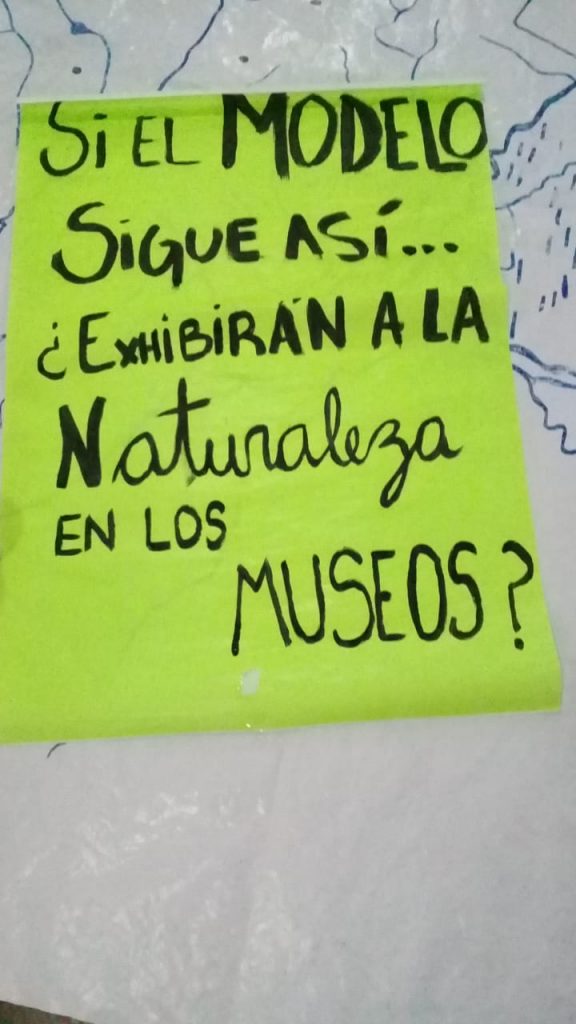 Si EL MODELO
SiGUE ASÍ...
¿EXHiBiRÁN A LA
Naturaleza
EN LOS
MUSEOS?